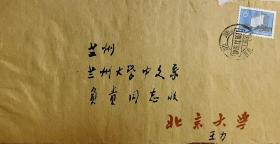 兰州
兰州大学中文系
负责同志收
北京大学
王力